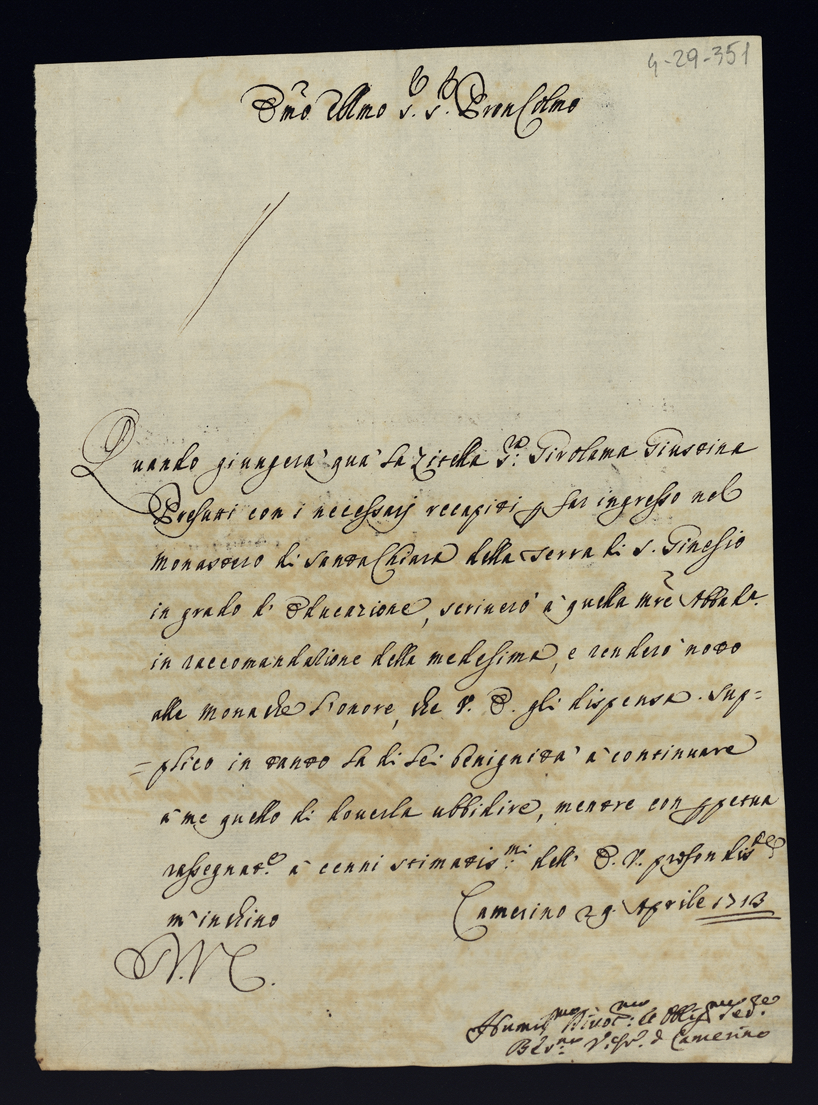 4-29-351
Emo Rmo S.r S.r Pron Colmo
Quando giungerà quà la Zitella S.ra Girolama Giustina
Presuti con i necessarij recapiti p far ingresso nel
Monastero di Santa Chiara della Serra di S. Ginesio
in grado d'Educazione, scriverò à quella Mre Abbad.a
in raccomandatione della medesima, e renderò noto
alle Monache l'onore, che V. E. gli dispensa. Sup=
=plico in tanto la di lei benignità à continuare
à me quello di doverla ubbidire, mentre con ppetua
rassegnat.e à cenni stimatis.mi dell' E. V. profondis.te
m'inchino
Camerino 29. Aprile 1713
V. E.
Humil.mo Divot.mo et Obligmo Ser.re
Vesc.o di Camerino